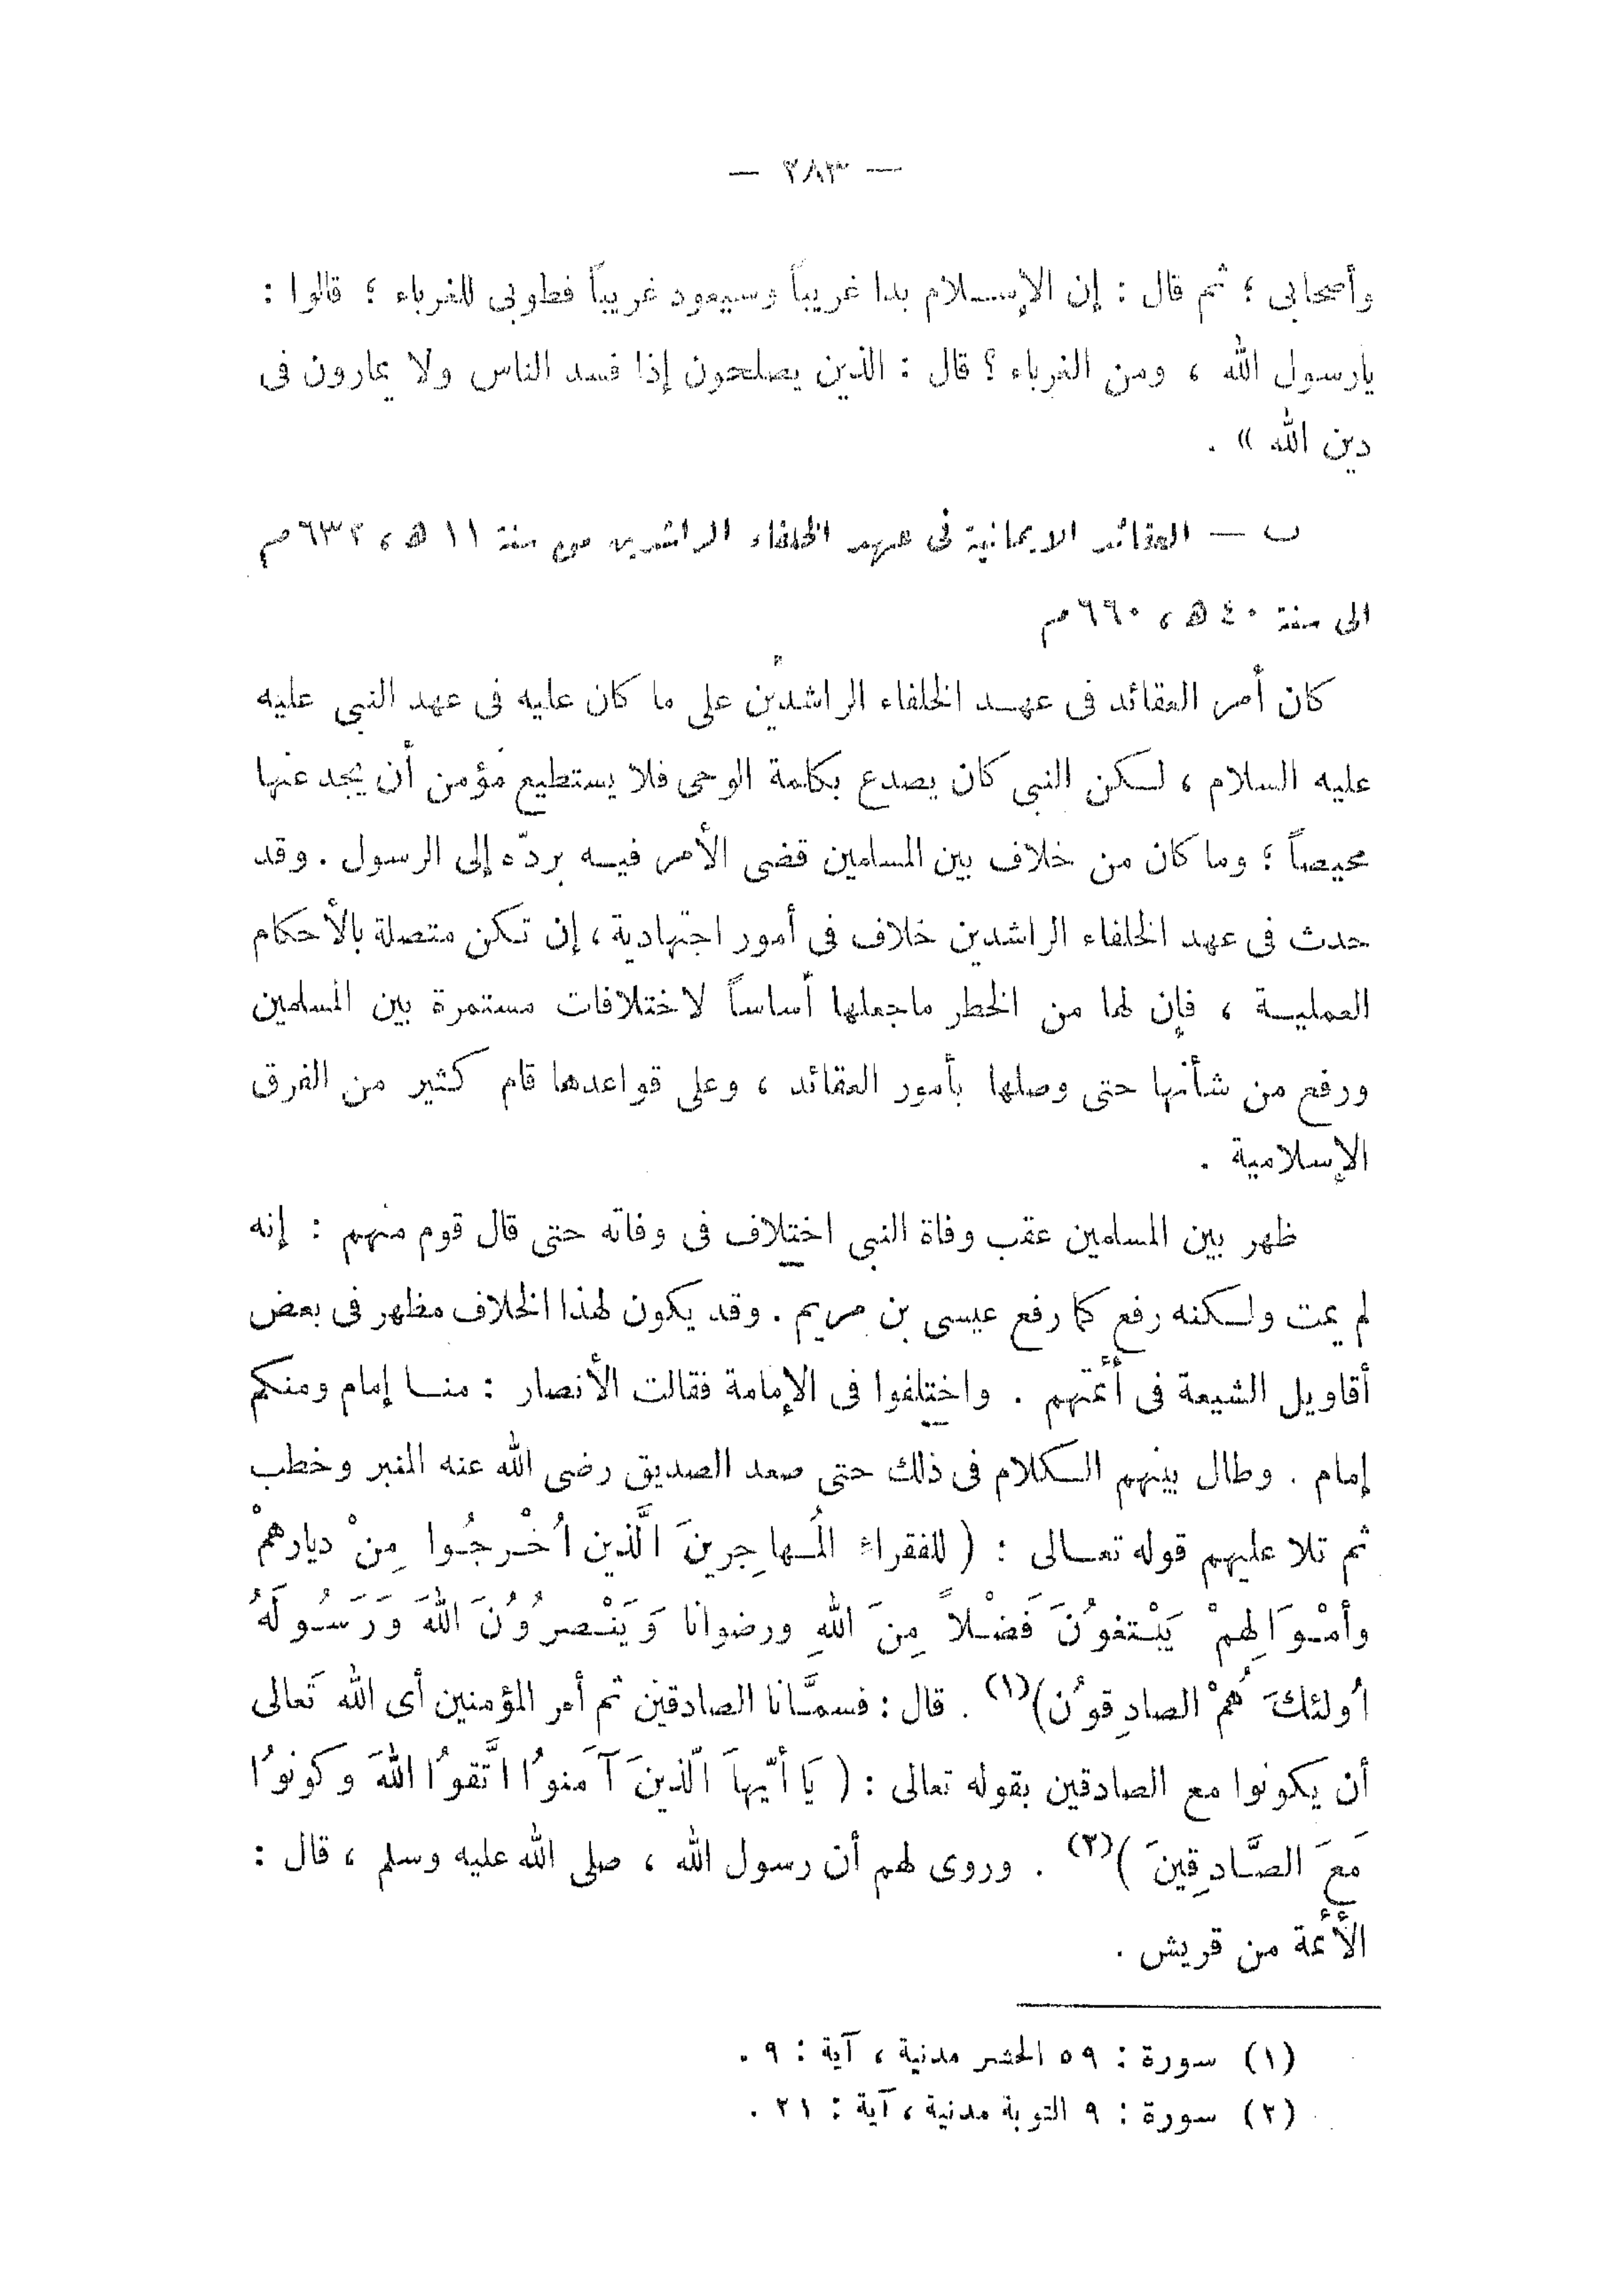 — ٢٨٣ —
وأصحابى ؛ ثم قال : إن الإسلام بدا غريباً وسيعود غريباً فطوبى للغرباء ؛ قالوا :
يارسول الله ، ومن الغرباء ؟ قال : الذين يصلحون إذا فسد الناس ولا يمارون فى
دين الله » .
ب — العقائد الايمانية فى عهد الخلفاء الراشدين من سنة ١١ ه ، ٦٣٢ م
الى سنة ٤٠ ه ، ٦٦٠ م
كان أمر العقائد فى عهد الخلفاء الراشدين على ما كان عليه فى عهد النبى عليه
عليه السلام ، لكن النبى كان يصدع بكلمة الوحى فلا يستطيع مؤمن أن يجد عنها
محيصاً ؛ وما كان من خلاف بين المسلمين قضى الأمر فيه بردّه إلى الرسول . وقد
حدث فى عهد الخلفاء الراشدين خلاف فى أمور اجتهادية ، إن تكن متصلة بالأحكام
العملية ، فإن لها من الخطر ماجعلها أساساً لاختلافات مستمرة بين المسلمين
ورفع من شأنها حتى وصلها بأمور العقائد ، وعلى قواعدها قام كثير من الفرق
الإسلامية .
ظهر بين المسلمين عقب وفاة النبى اختلاف فى وفاته حتى قال قوم منهم : إنه
لم يمت ولكنه رفع كما رفع عيسى بن مريم . وقد يكون لهذا الخلاف مظهر فى بعض
أقاويل الشيعة فى أئمتهم . واختلفوا فى الإمامة فقالت الأنصار : منا إمام ومنكم
إمام . وطال بينهم الكلام فى ذلك حتى صعد الصديق رضى الله عنه المنبر وخطب
ثم تلا عليهم قوله تعالى : ( للفقراء المُهاجِرينَ الَّذين أُخْرجُوا مِنْ ديارهمْ
وأمْوَالِهمْ يَبْتغوُنَ فَضْلاً مِنَ اللهِ ورضوانا وَيَنْصرُوُنَ اللهَ وَرَسُولَهُ
أُولئكَ هُمْ الصادِقوُن)(١) . قال : فسمَّانا الصادقين ثم أمر المؤمنين أى الله تَعالى
أن يكونوا مع الصادقين بقوله تعالى : ( يَا أيّهاَ الّذينَ آمَنوُا اتَّقوُا اللهَ وكونوُا
مَعَ الصَّادِقِينَ )(٢) . وروى لهم أن رسول الله ، صلى الله عليه وسلم ، قال :
الأئمة من قريش .
(١) سورة : ٥٩ الحشر مدنية ، آية : ٩ .
(٢) سورة : ٩ التوبة مدنية ، آية : ٢١ .